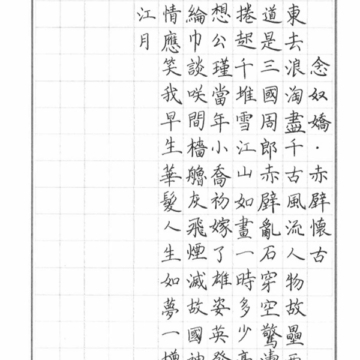 念奴嬌·赤壁懷古
東去浪淘盡千古風流人物故壘西
道是三國周郎赤壁亂石穿空驚濤
捲起千堆雪江山如畫一時多少豪
想公瑾當年小喬初嫁了雄姿英發
綸巾談咲間檣艣灰飛煙滅故國神
情應笑我早生華髮人生如夢一樽
江月